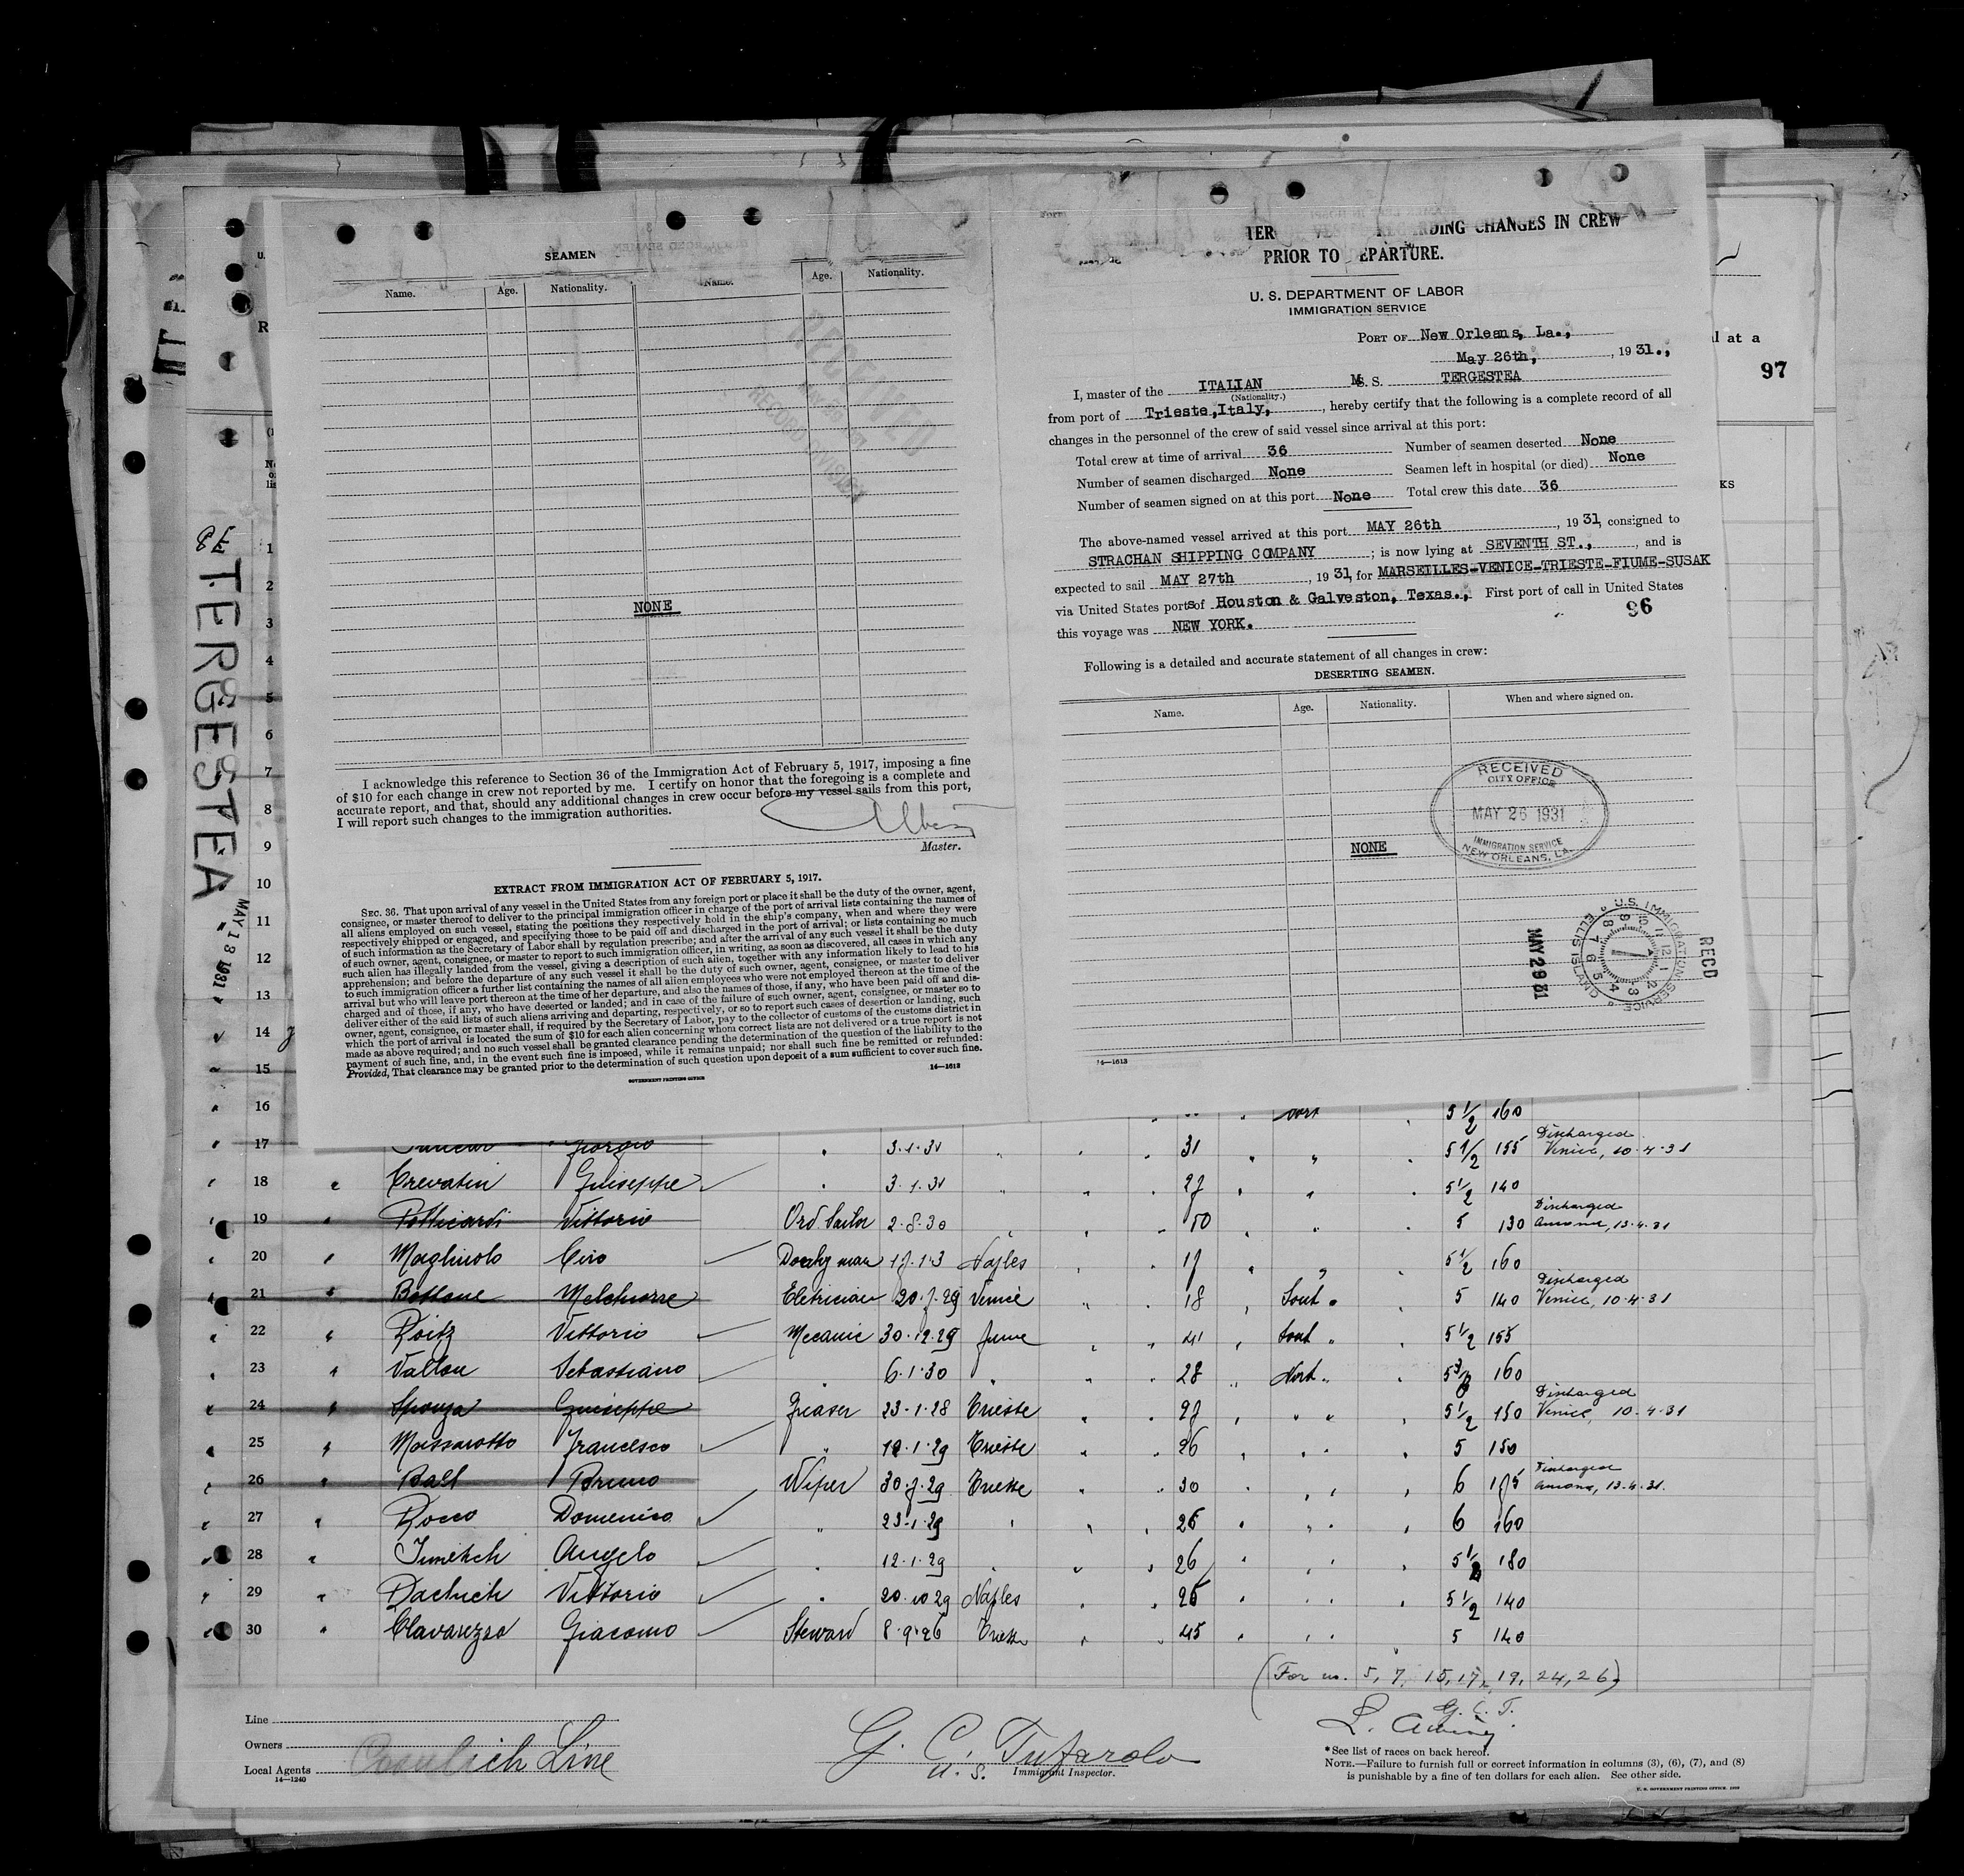 SEAMEN
Name. Age. Nationality. Name. Age. Nationality.
RECEIVED
RECORD DIVISION
NONE
I acknowledge this reference to Section 36 of the Immigration Act of February 5, 1917, imposing a fine
of $10 for each change in crew not reported by me. I certify on honor that the foregoing is a complete and
accurate report, and that, should any additional changes in crew occur before my vessel sails from this port,
I will report such changes to the immigration authorities.
Master.
EXTRACT FROM IMMIGRATION ACT OF FEBRUARY 5, 1917.
SEC. 36. That upon arrival of any vessel in the United States from any foreign port or place it shall be the duty of the owner, agent,
consignee, or master thereof to deliver to the principal immigration officer in charge of the port of arrival lists containing the names of
all aliens employed on such vessel, stating the positions they respectively hold in the ship's company, when and where they were
respectively shipped or engaged, and specifying those to be paid off and discharged in the port of arrival; or lists containing so much
of such information as the Secretary of Labor shall by regulation prescribe; and after the arrival of any such vessel it shall be the duty
of such owner, agent, consignee, or master to report to such immigration officer, in writing, as soon as discovered, all cases in which any
such alien has illegally landed from the vessel, giving a description of such alien, together with any information likely to lead to his
apprehension; and before the departure of any such vessel it shall be the duty of such owner, agent, consignee, or master to deliver
to such immigration officer a further list containing the names of all alien employees who were not employed thereon at the time of the
arrival but who will leave port thereon at the time of her departure, and also the names of those, if any, who have been paid off and dis-
charged and of those, if any, who have deserted or landed; and in case of the failure of such owner, agent, consignee, or master so to
deliver either of the said lists of such aliens arriving and departing, respectively, or so to report such cases of desertion or landing, such
owner, agent, consignee, or master shall, if required by the Secretary of Labor, pay to the collector of customs of the customs district in
which the port of arrival is located the sum of $10 for each alien concerning whom correct lists are not delivered or a true report is not
made as above required; and no such vessel shall be granted clearance pending the determination of the question of the liability to the
payment of such fine, and, in the event such fine is imposed, while it remains unpaid; nor shall such fine be remitted or refunded:
Provided, That clearance may be granted prior to the determination of such question upon deposit of a sum sufficient to cover such fine.
14—1613
GOVERNMENT PRINTING OFFICE
Form
TER RDING CHANGES IN CREW
PRIOR TO EPARTURE.
U. S. DEPARTMENT OF LABOR
IMMIGRATION SERVICE
PORT OF New Orleans, La.,
May 26th, , 1931.,
I, master of the ITALIAN M. S. TERGESTEA
(Nationality.)
from port of Trieste,Italy, , hereby certify that the following is a complete record of all
changes in the personnel of the crew of said vessel since arrival at this port:
Total crew at time of arrival 36 Number of seamen deserted None
Number of seamen discharged None Seamen left in hospital (or died) None
Number of seamen signed on at this port None Total crew this date 36
The above-named vessel arrived at this port MAY 26th , 1931, consigned to
STRACHAN SHIPPING COMPANY ; is now lying at SEVENTH ST., , and is
expected to sail MAY 27th , 1931, for MARSEILLES-VENICE-TRIESTE-FIUME-SUSAK
via United States ports of Houston & Galveston, Texas., First port of call in United States
this voyage was NEW YORK.
96
Following is a detailed and accurate statement of all changes in crew:
DESERTING SEAMEN.
Name. Age. Nationality. When and where signed on.
RECEIVED
CITY OFFICE
MAY 26 1931
IMMIGRATION SERVICE
NEW ORLEANS, LA.
NONE
U.S. IMMIGRATION SERVICE
RECD
MAY 29 31
14—1613
l at a
97
KS
TERGESTEA
MAY 18 1931
1
2
3
4
5
6
7
8
9
10
11
12
13
14
15
16 5 1/2 160
17 Giorgio 3.1.31 31 5 1/2 155 Discharged Venice, 10-4-31
18 Crevatin Giuseppe 3.1.31 27 5 1/2 140
19 Vittorio Ord Sailor 2.8.30 50 5 130 Discharged Ancona, 13-4-31
20 Magliulo Ciro Donkey man Naples 5 1/2 160
21 Bottone Melchiorre Eletrician 20.7.29 Venice 18 South 5 140 Discharged Venice, 10-4-31
22 Roitz Vittorio Mecanic 30.12.29 Fiume 41 South 5 1/2 155
23 Vallon Sebastiano 6.1.30 28 North 160
24 Sponza Giuseppe Greaser 23.1.28 Trieste 27 5 1/2 150 Discharged Venice, 10-4-31
25 Massarotto Francesco Trieste 26 5 150
26 Ball Bruno Wiper 30.7.29 Trieste 30 6 175 Discharged Ancona, 13-4-31.
27 Rocco Domenico 23.1.29 6 160
28 Angelo 12.1.29 26 180
29 Vittorio 20.10.29 Naples 5 1/2 140
30 Giacomo Steward 8.9.26 Trieste 45 5 140
(For no. 5, 7, 15, 17, 19, 24, 26)
G. C. T.
Line
Owners
Local Agents Line
14—1240
G. C. Tufarolo
U. S. Immigrant Inspector.
*See list of races on back hereof.
NOTE.—Failure to furnish full or correct information in columns (3), (6), (7), and (8)
is punishable by a fine of ten dollars for each alien. See other side.
U. S. GOVERNMENT PRINTING OFFICE